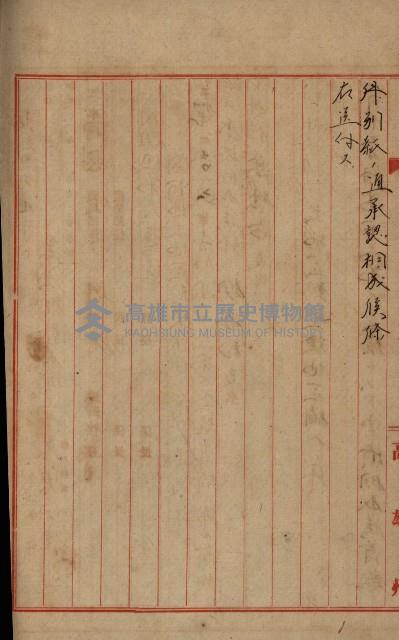 件別紙ノ通承認相成候條
右送付ス
高雄州
高雄市立歷史博物館
KAOHSIUNG MUSEUM OF HISTORY